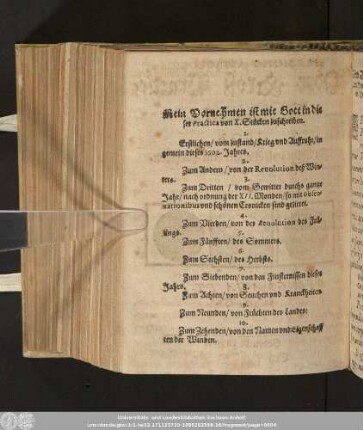 Mein Vornehmen ist mit Gott in die
ser Practica von X. Stücken zuschreiben.
1.
Erstlichen/ vom zustand/ Krieg vnd Auffruhr/ in
gemein dieses 1602. Jahres.
2.
Zum Andern/ von der Revolution deß Win-
ters.
3.
Zum Dritten/ vom Gewitter durchs gantze
Jahr/ nach ordnung der XII. Monden/ so mit obser-
vationibus vnd schönen Cronicken sind geziret.
4.
Zum Vierden/ von der Revolution des Frü-
lings.
5.
Zum Fünfften/ des Sommers.
6.
Zum Sechsten/ des Herbsts.
7.
Zum Siebenden/ von den Finsternissen dieses
Jahrs.
8.
Zum Achten/ von Seuchen vnd Kranckheiten
9.
Zum Neunden/ von Früchten des Landes.
10.
Zum Zehenden/ von den Namen vnd eigenschaff
ten der Winden.
Universitäts- und Landesbibliothek Sachsen-Anhalt